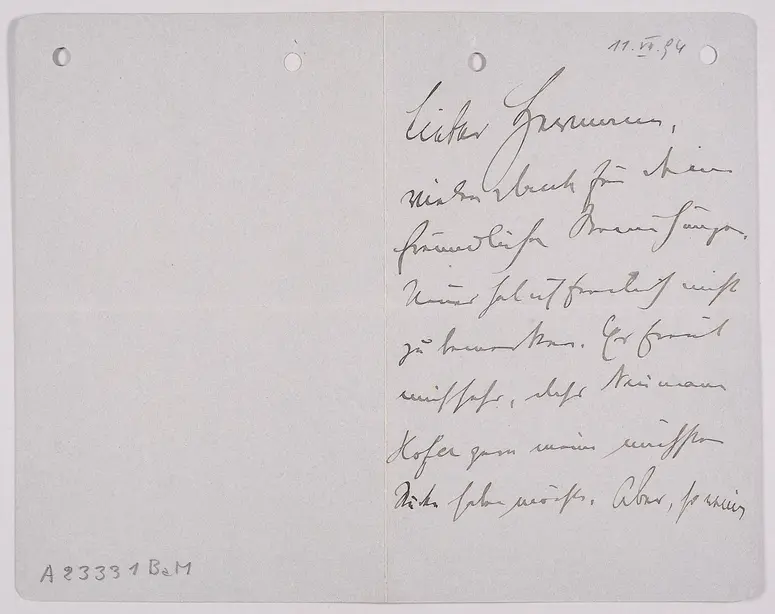 11. VII. 94
Lieber Hermann,
vielen Dank für deine
freundlichen Bemühungen.
Neues hab ich freilich nicht
zu bemerken. Es freut
mich sehr, dass Neumann
Hofer gern meine nächsten
Stücke haben möchte. Aber, so wenig
A 23331 BaM